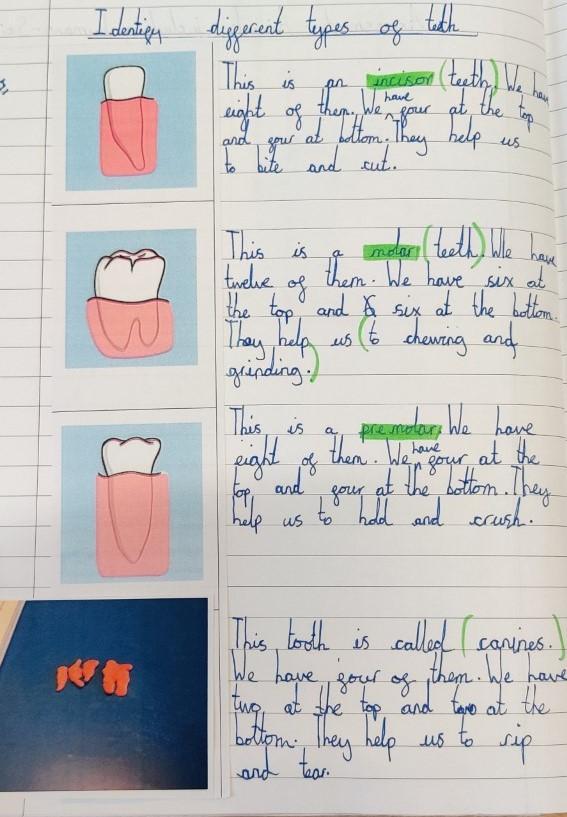 Identify different types of teeth
This is an incisor (teeth). We have
eight of them. We have four at the top
and four at bottom. They help us
to bite and cut.
This is a molar (teeth). We have
twelve of them. We have six at
the top and six at the bottom.
They help us (to chewing and
grinding.)
This is a premolar. We have
eight of them. We have four at the
top and four at the bottom. They
help us to hold and crush.
This tooth is called (canines.)
We have four of them. We have
two at the top and two at the
bottom. They help us to rip
and tear.